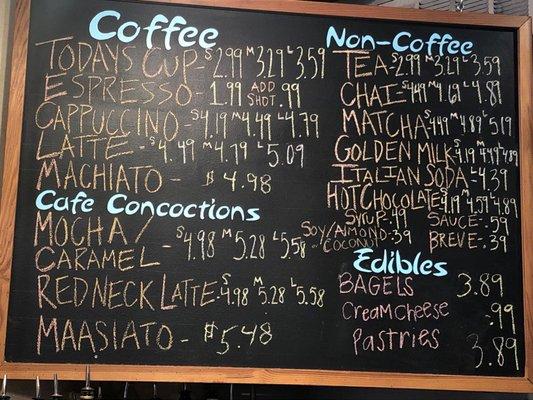 Coffee
TODAYS CUP S2.99 M3.29 L3.59
ESPRESSO - 1.99 ADD SHOT .99
CAPPUCCINO S4.19 M4.49 L4.79
LATTE - S4.49 M4.79 L5.09
MACHIATO - $4.98
Cafe Concoctions
MOCHA/
CARAMEL - S4.98 M5.28 L5.58
REDNECK LATTE - S4.98 M5.28 L5.58
MAASIATO - $5.48
Non-Coffee
TEA - S2.99 M3.29 L3.59
CHAI - S4.49 M4.69 L4.89
MATCHA - S4.49 M4.89 L5.19
GOLDEN MILK - S4.19 M4.49 L4.89
ITALIAN SODA - L4.39
HOT CHOCOLATE S4.19 M4.59 L4.89
SYRUP - .49 SAUCE - .59
SOY/ALMOND - .39 BREVE - .39
COCONUT
Edibles
BAGELS 3.89
Cream Cheese - .99
Pastries 3.89